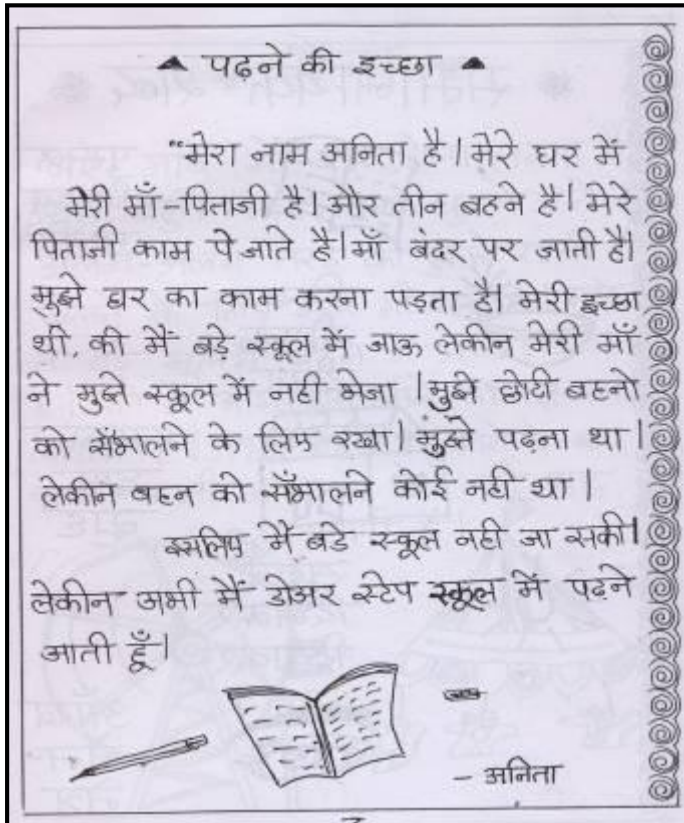 पढ़ने की इच्छा
"मेरा नाम अनिता है। मेरे घर में
मेरी माँ-पिताजी है। और तीन बहने है। मेरे
पिताजी काम पे जाते है। माँ बंदर पर जाती है।
मुझे घर का काम करना पड़ता है। मेरी इच्छा
थी, की मैं बड़े स्कूल में जाऊ लेकीन मेरी माँ
ने मुझे स्कूल में नही भेजा। मुझे छोटी बहनो
को सँभालने के लिए रखा। मुझे पढ़ना था।
लेकीन बहन को सँभालने कोई नही था।
इसलिए मैं बडे स्कूल नही जा सकी।
लेकीन अभी मैं डोअर स्टेप स्कूल में पढ़ने
जाती हूँ।
- अनिता